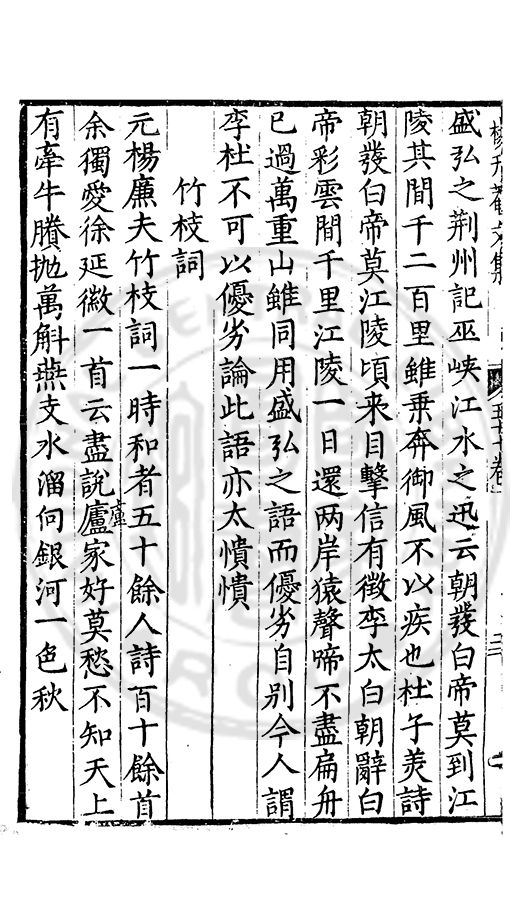 盛弘之荆州記巫峽江水之迅云朝發白帝莫到江
陵其間千二百里雖乗奔御風不以疾也杜子美詩
朝發白帝莫江陵頃来目擊信有徴李太白朝辭白
帝彩雲間千里江陵一日還两岸猿聲啼不盡扁舟
已過萬重山雖同用盛弘之語而優劣自别今人謂
李杜不可以優劣論此語亦太憒憒
竹枝詞
元楊廉夫竹枝詞一時和者五十餘人詩百十餘首
余獨愛徐延徽一首云盡說盧家好莫愁不知天上
有牽牛賸抛萬斛燕支水溜向銀河一色秋